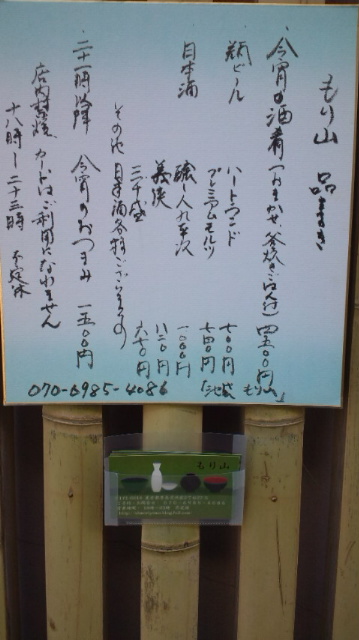 もり山 品書き
今宵の酒肴(おまかせ、釜炊きごはん付) 四五〇〇円
瓶ビール ハートランド 七〇〇円
プレミアムモルツ 七四〇円
日本酒 醸し人九平次 一〇〇〇円
義侠 八二〇円
三千盛 六七〇円
その他 日本酒各種ございます
二十一時以降 今宵のおつまみ 一五〇〇円
店内禁煙 カードはご利用になれません
十八時〜二十三時 不定休
「池袋 もり山」
070-6985-4086
もり山